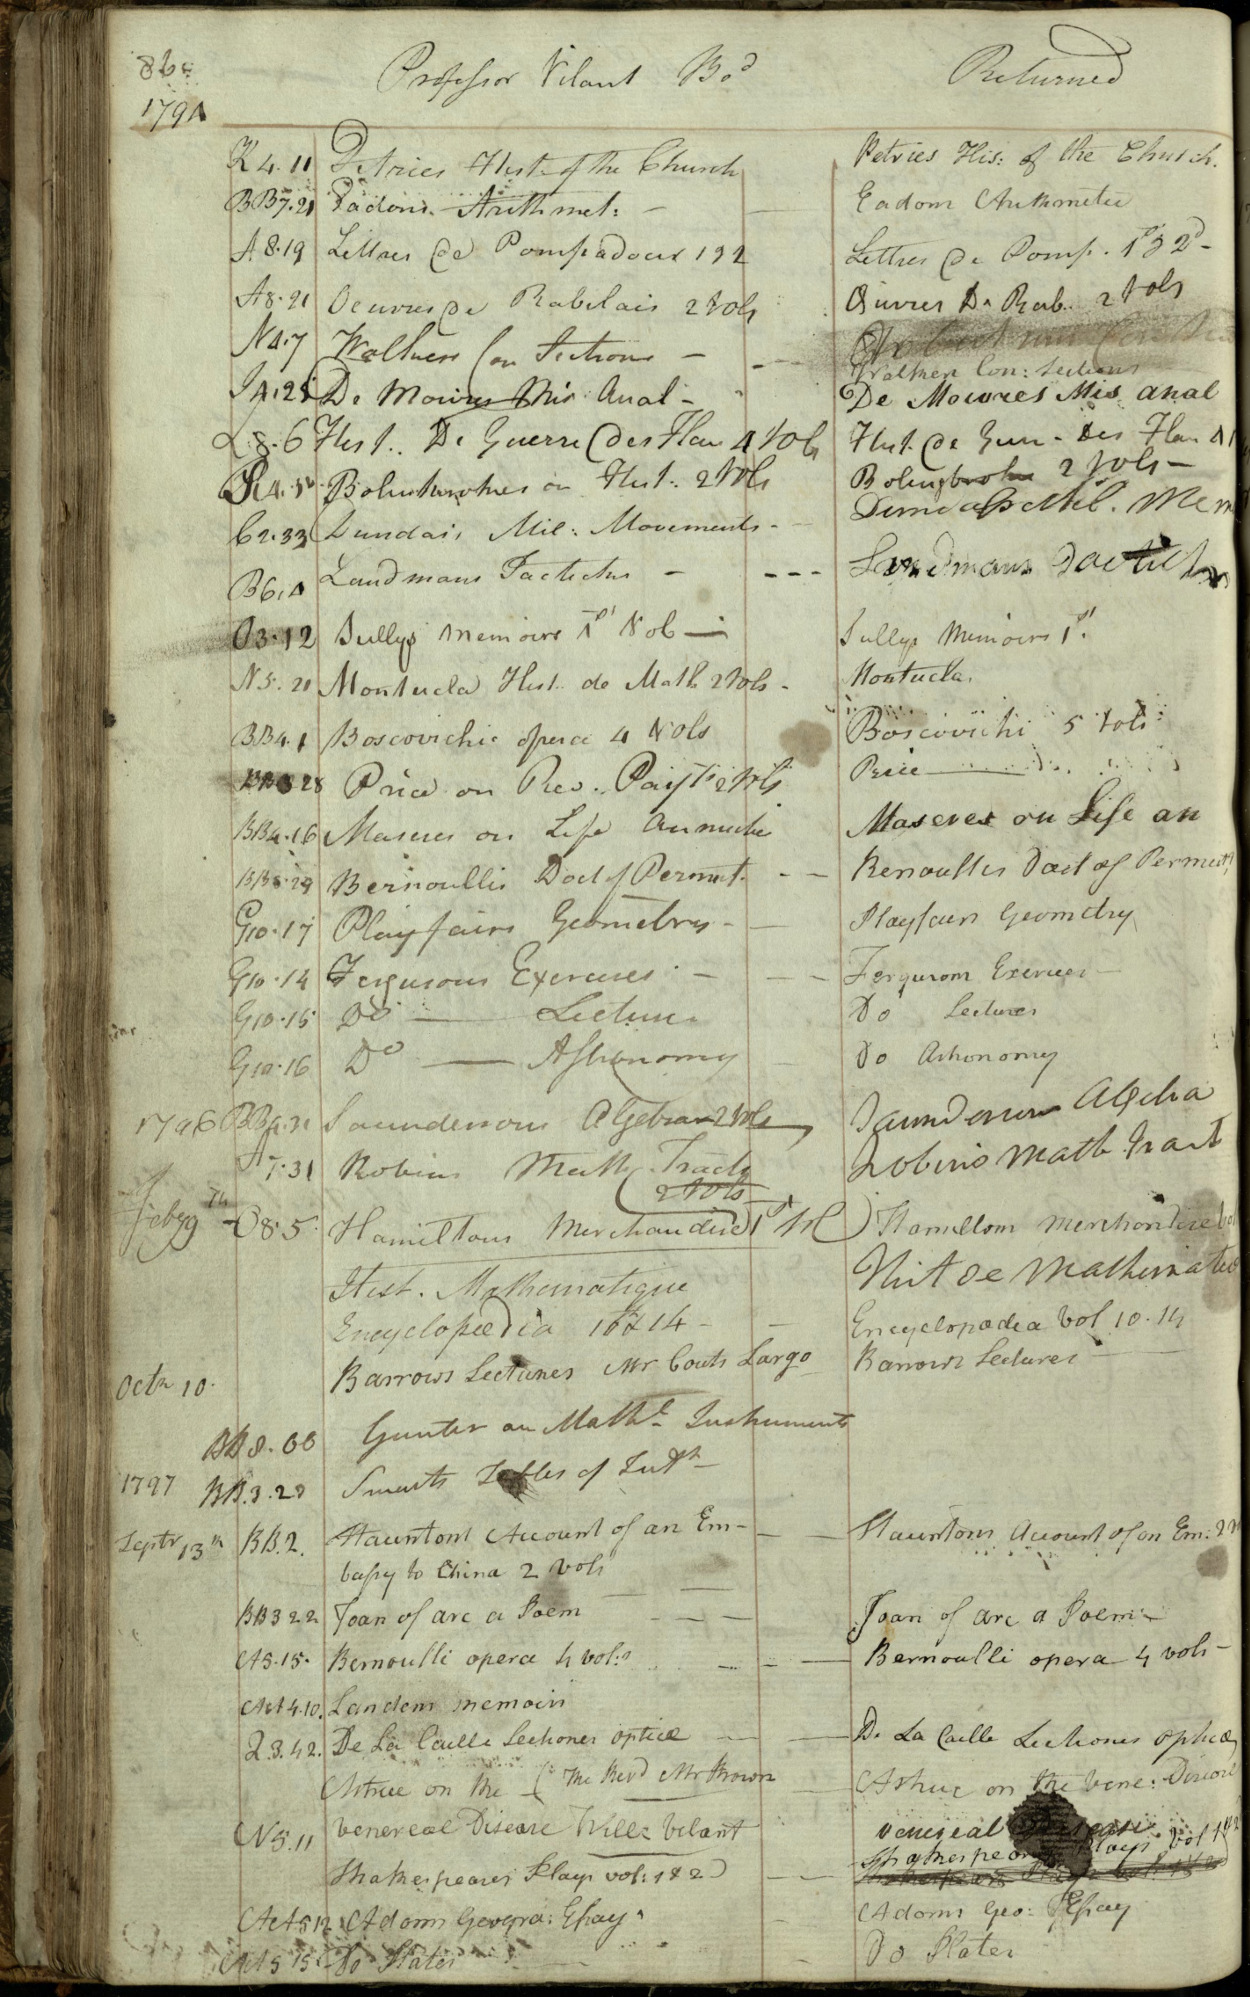 86
Professor Vilant Bo^d Returned
1794
K 4.11 Petries Hist. of the Church Petries His: of the Church.
BB7.21 Eadons Arithmet: — Eadom Arithmetic
A 8.19 Lettres de Pompadour 1 & 2 Lettres de Pomp. 1^st & 2^d -
A8.21 Oeuvres de Rabelais 2 Vols Ouvres De Rab. 2 Vols
N4.7 Walkers Con Sections — Walkers Con: Sections
De Moivres Mis Anal - De Moivres Mis anal
L8.6 Hist. De Guerre des Flan 4 Vols Hist. de Guer. Des Flan 4
Bolinbrokes on Hist: 2 Vols Bolingbroke 2 Vols -
C2.33 Dundass Mil: Movements - Dundass Mil. Mem
B6.4 Landmans Tacticks - - - - Landmans Tacticks
O3.12 Sullys Memoirs 1^st Vol — Sullys Memoirs 1^st
N5.20 Montucla Hist. de Math 2 Vols - Montucla.
BB4.1 Boscovichi opera 4 Vols Boscovichi 5 Vols
28 Price on Rev. Payts 2 Vols Price
BB4.16 Maseres on Life Annuitie Maseres on Life an
BB5.29 Bernoullis Doct of Permut. - - Bernoullis Doct of Permut
G10.17 Playfairs Geometry - Playfairs Geometry
G10.14 Fergusons Exercises - - - Ferguson Exercises
G10.15 D^o — Lectures Do Lectures
G10.16 D^o — Astronomy Do Astronomy
1796 BB4.31 Saundersons Algebra 2 Vols Saundersons Algebra
A7.31 Robins Math Tracts Robins Math. Tract
2 Vols
Feby 9^th O8.5 Hamiltons Merchandise 1^st Vol Hamiltons Merchandise
Hist. Mathematique Hist de Mathematic
Encyclopædia 10 & 14 - - Encyclopædia Vol 10.14
Octr 10. Barrows Lectures Mr Couts Largo Barrows Lectures
BB8.66 Gunter on Math^l Instruments
1797 BB.3.28 Smarts Tables of Int^st
Septr 13^th BB.2. Stauntons Account of an Em- Stauntons Account of an Em: 2
bassy to China 2 vols
BB3 22 Joan of Arc a Poem - - - Joan of Arc a Poem -
A5.15. Bernoulli opera 4 vol:s Bernoulli opera 4 vols -
AA4.10. Landens memoirs
Q.3.42. De La Caille Lectiones opticæ De La Caille Lectiones opticæ
Astruc on the (The Rev^d Mr Brown Astruc on the Vene: Disease
N5.11 Venereal Disease Will: Vilant Venereal Disease
Shakespeares Plays vol: 1 & 2 Shakespeares Plays Vol 1 & 2
AA5 12 Adams Geogra: Essay Adams Geo: Essay
AA5 15 Do Plates Do Plates